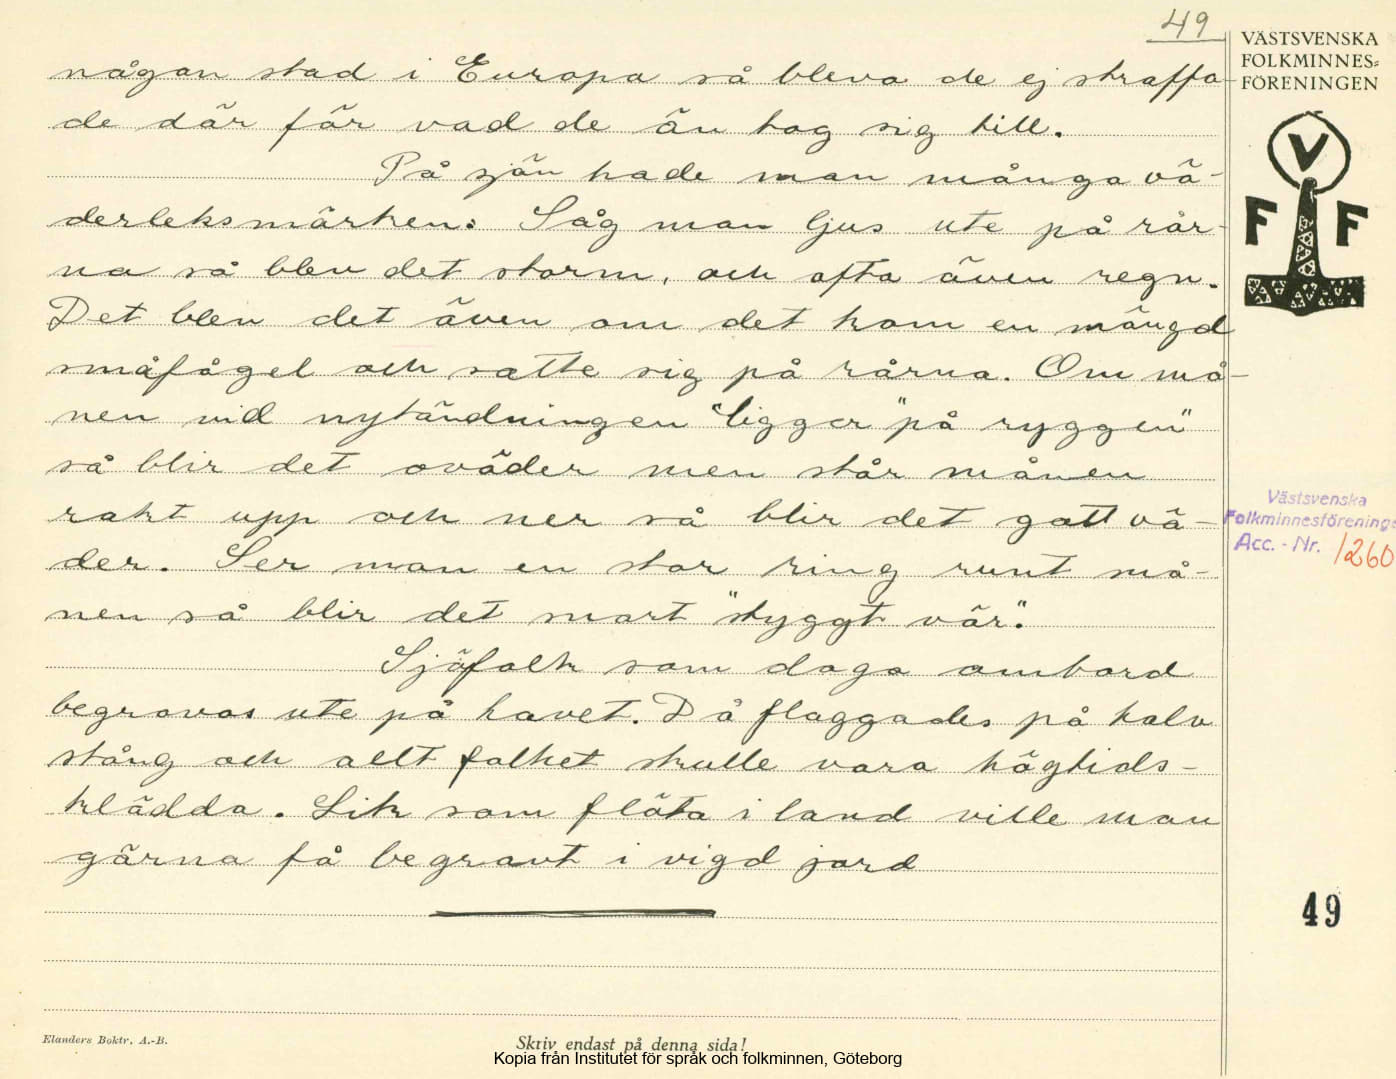 49
någon stad i Europa så bleva de ej straffa-
de där för vad de än tog sig till.
På sjön hade man många vä-
derleksmärken: Såg man ljus ute på rår-
na så blev det storm, och ofta även regn.
Det blev det även om det kom en mängd
småfågel och satte sig på rårna. Om må-
nen vid nytändningen "ligger" på ryggen"
så blir det oväder men står månen
rakt upp och ner så blir det gott vä-
der. Ser man en stor ring runt må-
nen så blir det snart "styggt vär".
Sjöfolk som dogo ombord
begrovos ute på havet. Då flaggades på halv
stång och allt folket skulle vara högtids-
klädda. Lik som flöto i land ville man
gärna få begravt i vigd jord
VÄSTSVENSKA
FOLKMINNES=
FÖRENINGEN
V
F F
Västsvenska
Folkminnesförening
Acc. - Nr. 1260
49
Elanders Boktr. A.-B.
Skriv endast på denna sida!
Kopia från Institutet för språk och folkminnen, Göteborg